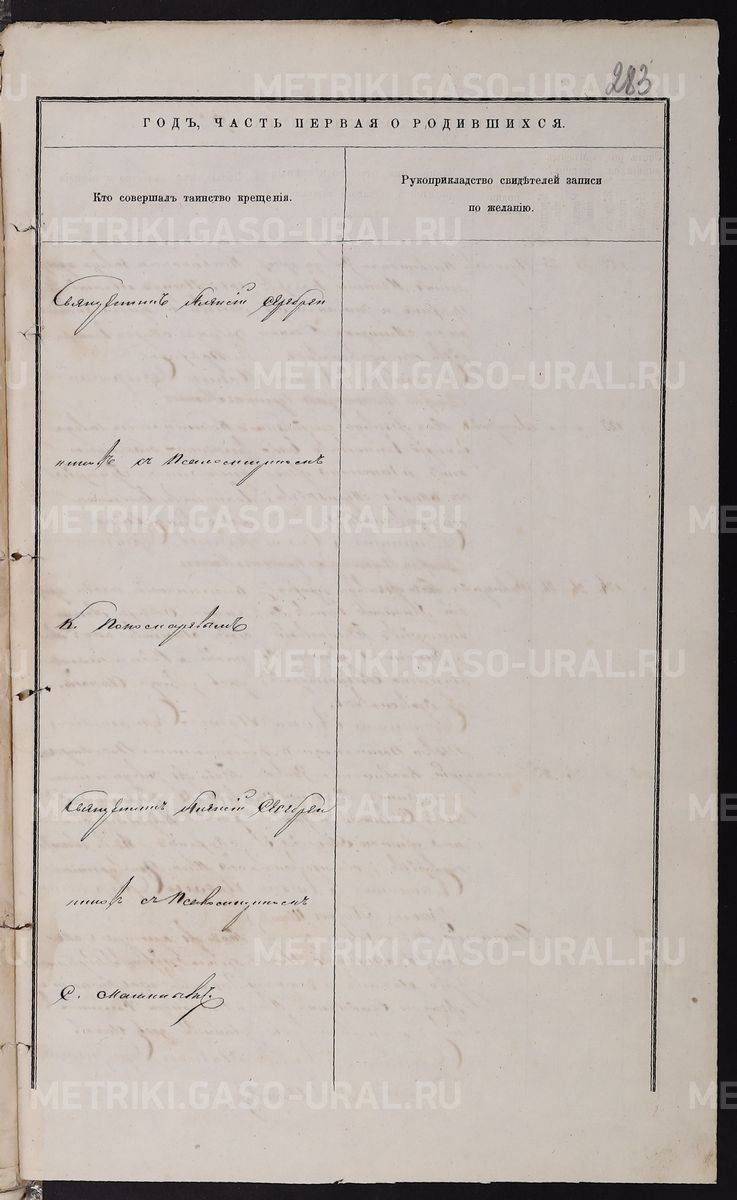 283
ГОДЪ, ЧАСТЬ ПЕРВАЯ О РОДИВШИХСЯ.
Кто совершалъ таинство крещенія.
Рукоприкладство свидѣтелей записи
по желанію.
Священникъ Алексій Серебрен
никовъ съ Псаломщикомъ
К. Пономаревымъ
Священникъ Алексій Серебрен
никовъ съ Псаломщикомъ
С.
METRIKI.GASO-URAL.RU